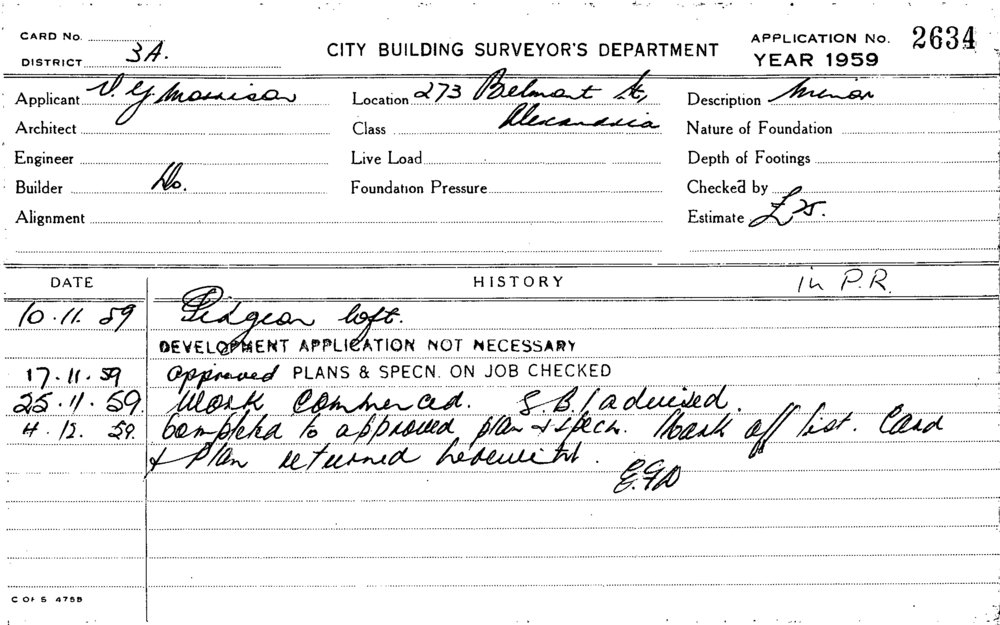 CARD No.
DISTRICT 3A.
CITY BUILDING SURVEYOR'S DEPARTMENT
APPLICATION No. 2634
YEAR 1959
Applicant V G Morrison
Location 273 Belmont St,
Description Minor
Architect
Class Alexandria
Nature of Foundation
Engineer
Live Load
Depth of Footings
Builder Do.
Foundation Pressure
Checked by
Alignment
Estimate £25.
DATE
HISTORY
in P.R.
10.11.59 Pidgeon loft.
DEVELOPMENT APPLICATION NOT NECESSARY
17.11.59 approved PLANS & SPECN. ON JOB CHECKED
25.11.59. Work Commenced. S.B. advised.
4.12.59. Completed to approved plan & specn. Mark off list. Card
& Plan returned herewith.
E.G.D
C OF S 475B